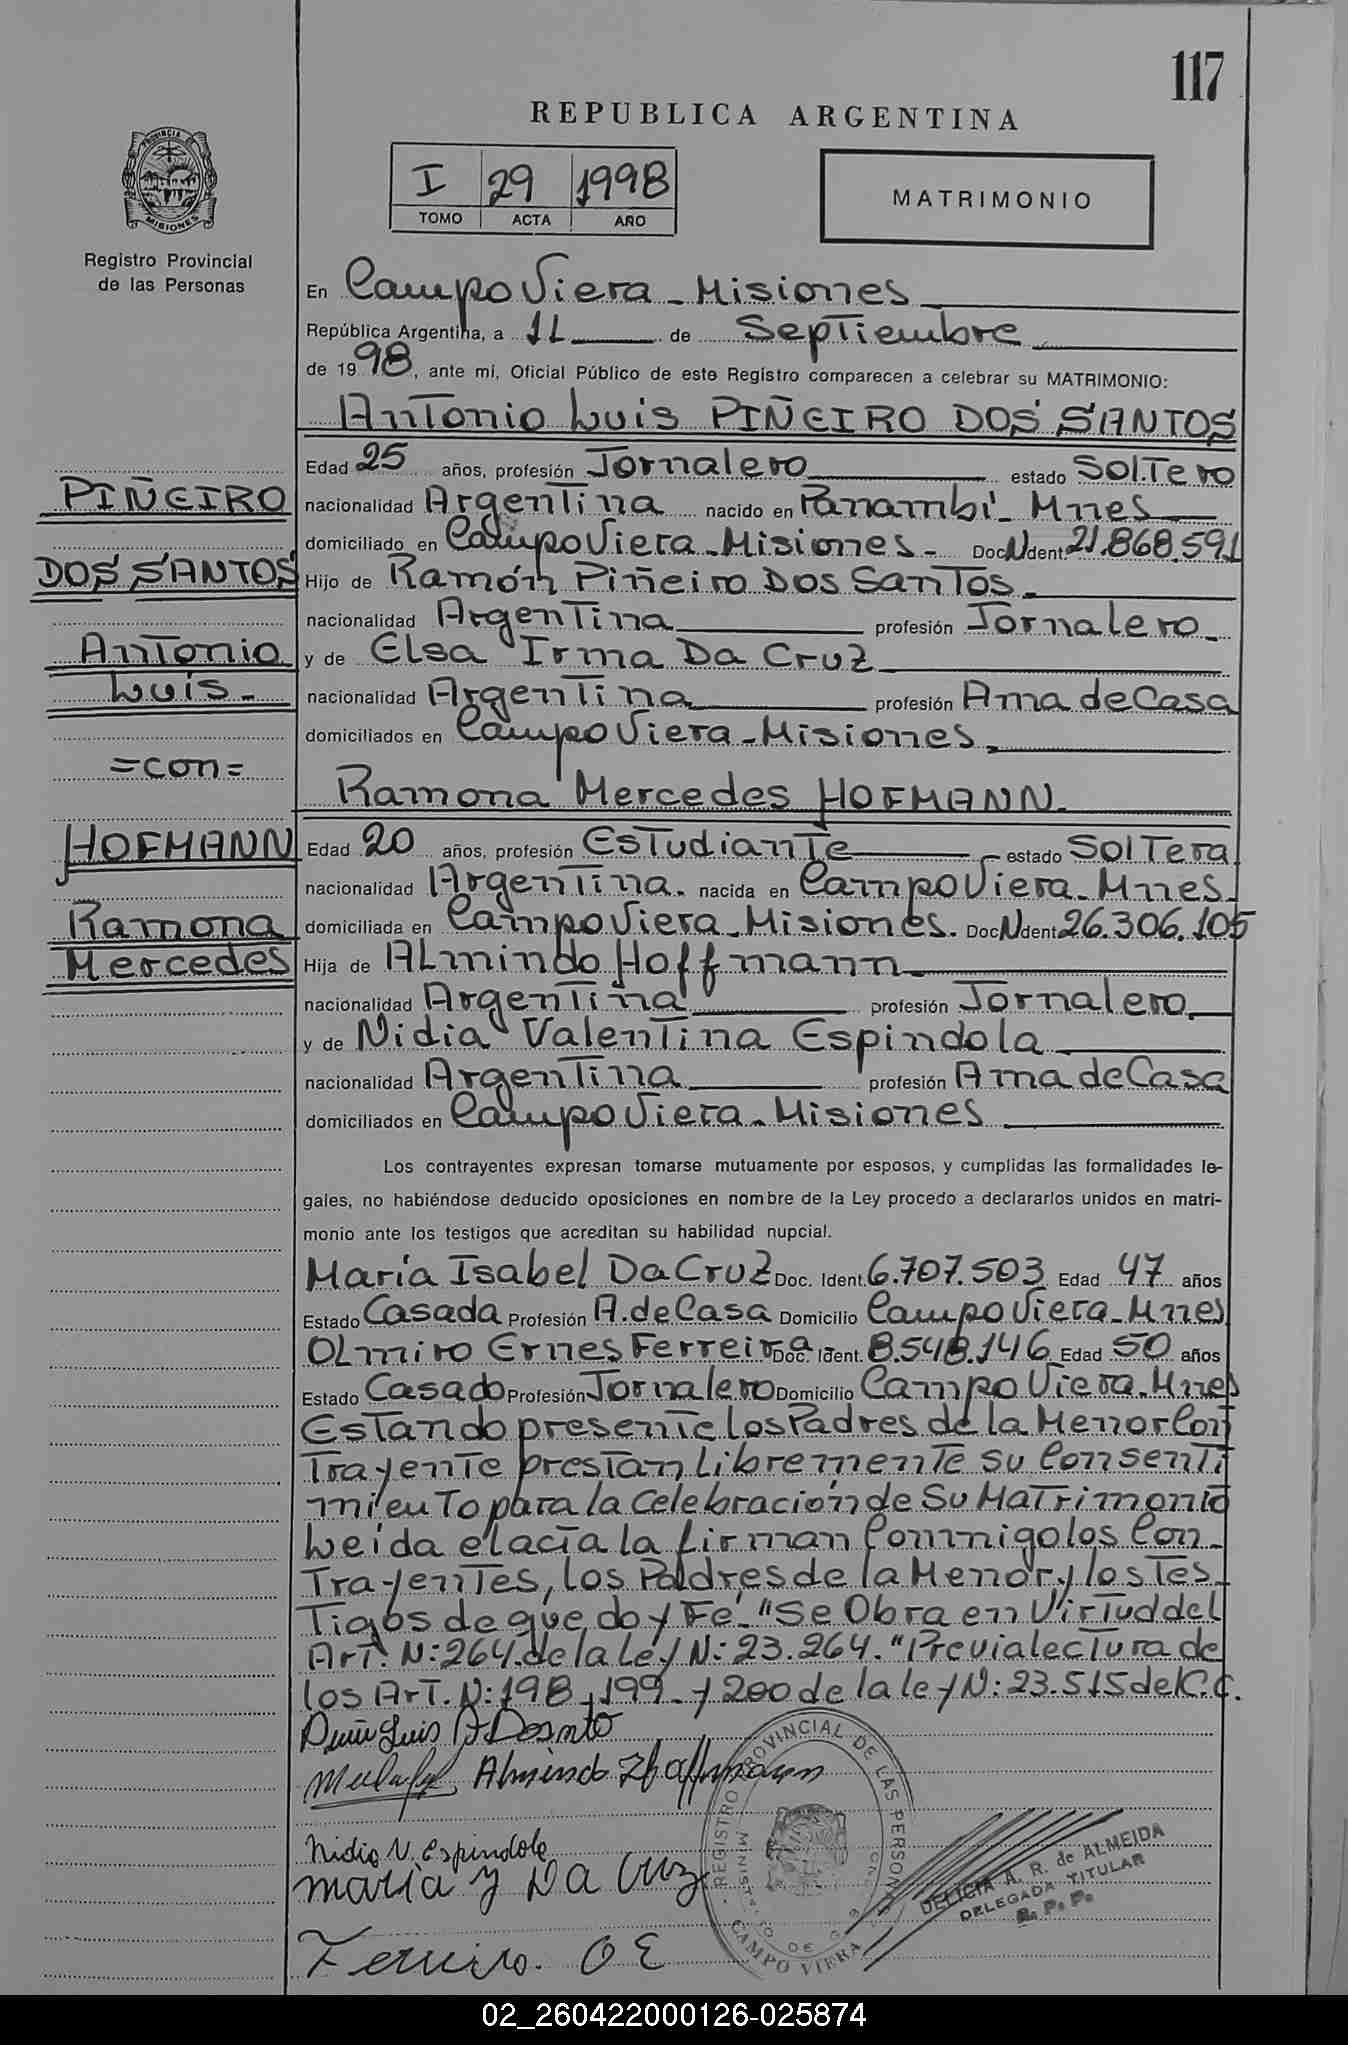 117
REPUBLICA ARGENTINA
I 29 1998
TOMO ACTA AÑO
MATRIMONIO
PROVINCIA DE
MISIONES
Registro Provincial
de las Personas
En Campo Viera - Misiones
República Argentina, a 11 de Septiembre
de 1998, ante mi, Oficial Público de este Registro comparecen a celebrar su MATRIMONIO:
Antonio Luis PIÑEIRO DOS SANTOS
Edad 25 años, profesión Jornalero estado Soltero
nacionalidad Argentina nacido en Panambí - Mnes
domiciliado en Campo Viera - Misiones - Doc N Ident. 21.868.591
Hijo de Ramón Piñeiro Dos Santos.
nacionalidad Argentina profesión Jornalero -
y de Elsa Irma Da Cruz
nacionalidad Argentina profesión Ama de Casa
domiciliados en Campo Viera - Misiones.
PIÑEIRO
DOS SANTOS
Antonio
Luis -
= con =
HOFMANN
Ramona
Mercedes
Ramona Mercedes HOFMANN.
Edad 20 años, profesión Estudiante estado Soltera
nacionalidad Argentina. nacida en Campo Viera - Mnes.
domiciliada en Campo Viera - Misiones. Doc N Ident. 26.306.105
Hija de Almindo Hoffmann
nacionalidad Argentina profesión Jornalero.
y de Nidia Valentina Espindola
nacionalidad Argentina profesión Ama de Casa
domiciliados en Campo Viera - Misiones
Los contrayentes expresan tomarse mutuamente por esposos, y cumplidas las formalidades le-
gales, no habiéndose deducido oposiciones en nombre de la Ley procedo a declararlos unidos en matri-
monio ante los testigos que acreditan su habilidad nupcial.
María Isabel Da Cruz Doc. Ident. 6.707.503 Edad 47 años
Estado Casada Profesión A. de Casa Domicilio Campo Viera - Mnes
Olmiro Ernes Ferreira - Doc. Ident. 8.548.146 Edad 50 años
Estado Casado Profesión Jornalero Domicilio Campo Viera - Mnes
Estando presente los Padres de la Menor Con
trayente prestan libremente su Consenti
miento para la Celebración de Su Matrimonio
Leida el acta la firman Conmigo los Con-
trayentes, los Padres de la Menor y los Tes-
tigos de que doy Fé. "Se Obra en Virtud del
Art. N: 264. de la ley N: 23.264. "Previa lectura de
los Art. N: 198, 199 - y 200 de la ley N: 23.515 del C.C.
Almindo Hoffmann
Nidia V. Espindola
maria y Da Cruz
Ferreira. O E
REGISTRO PROVINCIAL DE LAS PERSONAS
CAMPO VIERA
DELICIA A. R. de ALMEIDA
DELEGADA TITULAR
R. P. P.
02_260422000126-025874